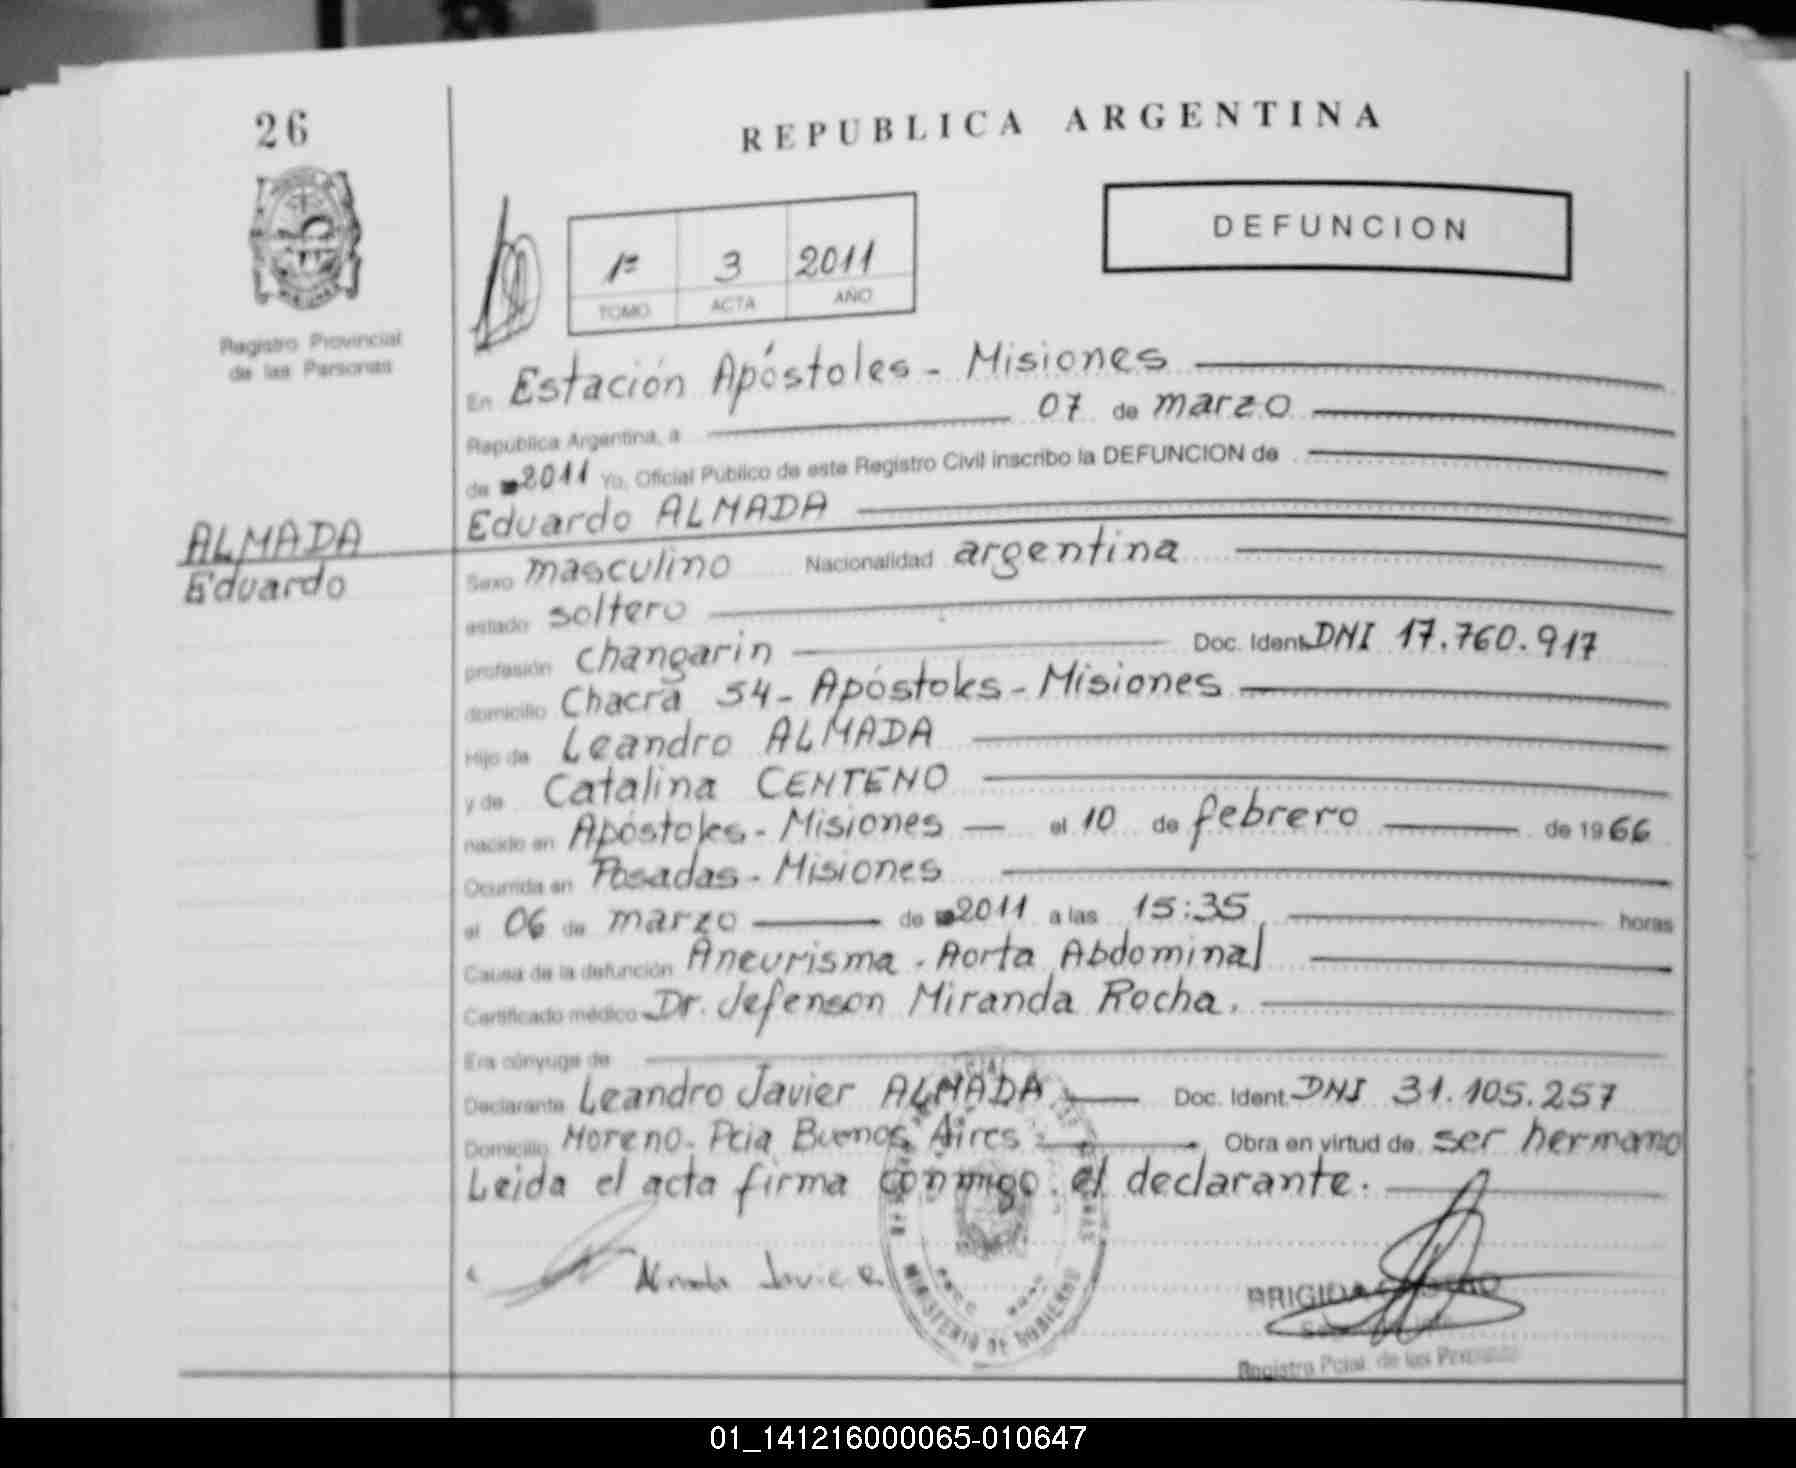 26
REPUBLICA ARGENTINA
DEFUNCION
1º 3 2011
TOMO ACTA AÑO
Registro Provincial
de las Personas
En Estación Apóstoles - Misiones
República Argentina, a 07 de marzo
de 2011 Yo, Oficial Público de este Registro Civil inscribo la DEFUNCION de
ALMADA
Eduardo
Eduardo ALMADA
Sexo masculino Nacionalidad argentina
estado soltero
profesión changarin Doc. Ident. DNI 17.760.917
domicilio Chacra 54 - Apóstoles - Misiones
Hijo de Leandro ALMADA
y de Catalina CENTENO
nacido en Apóstoles - Misiones el 10 de febrero de 1966
Ocurrida en Posadas - Misiones
el 06 de marzo de 2011 a las 15:35 horas
Causa de la defunción Aneurisma - Aorta Abdominal
Certificado médico Dr. Jefenson Miranda Rocha.
Era cónyuge de
Declarante Leandro Javier ALMADA Doc. Ident. DNI 31.105.257
Domicilio Moreno - Pcia Buenos Aires Obra en virtud de ser hermano
Leida el acta firma conmigo el declarante.
Almada Javier
MINISTERIO DE GOBIERNO
BRIGIDA
Registro Pcial. de las Personas
01_141216000065-010647